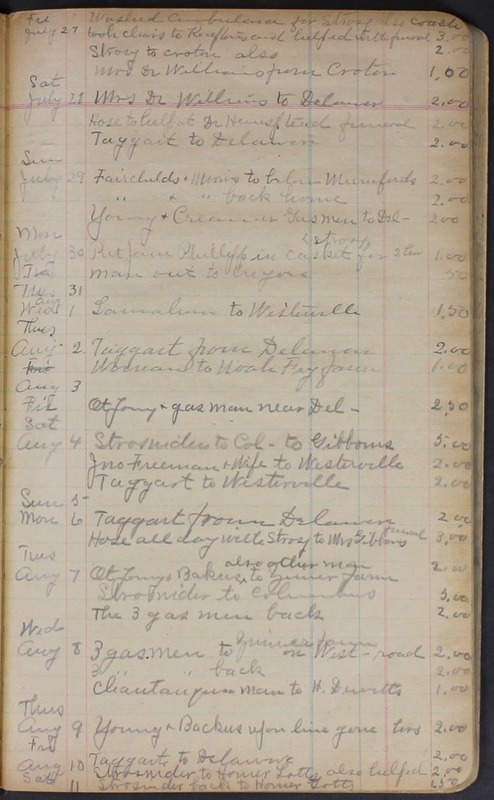 Fri Washed Ambulance for Strosy also coach
July 27 took chairs to and helped with funeral 3.00
Strosy to croton also 2.00
Mrs Dr Williams from Croton 1.00
Sat
July 28 Mrs Dr Williams to Delaware 2.00
Hose to help at Dr Hempstead funeral 2.00
Taggart to Delaware 2.00
Sun
July 29 Fairchilds + to Mumfords 2.00
" + " back home 2.00
Young + Creamer Gas men to Del - 2.00
Mon Strosy
July 30 Put Jane Phillips in casket for 1.00
Tue man out to 50
Tues 31
Aug
Wed 1 to Westerville 1.50
Thus
Aug 2 Taggart from Delaware 2.00
Fri Woman to Noah Fry farm 1.00
Aug 3
Fri + gas man near Del - 2.50
Sat
Aug 4 Strosnider to Col - to Gibbons 5.00
Jno Freeman + Wife to Westerville 2.00
Taggart to Westerville 2.00
Sun 5
Mon 6 Taggart from Delaware 2.00
Hose all day with Strosy to Mrs Gibbons funeral 3.00
Tues also other man
Aug 7 Backus, to farm 2.00
Strosnider to Columbus 5.00
The 3 gas men back 2.00
Wed farm
Aug 8 3 gas men to on West - road 2.00
3 " " back 2.00
Chautauqua man to H. Dewitts 1.00
Thus
Aug 9 Young + Backus upon line gone 2.00
Fri
Aug 10 Taggart to Delaware 2.00
Strosnider to Homer Lotts also helped 2.00
Sat 11 Strosnider back to Homer Lotts